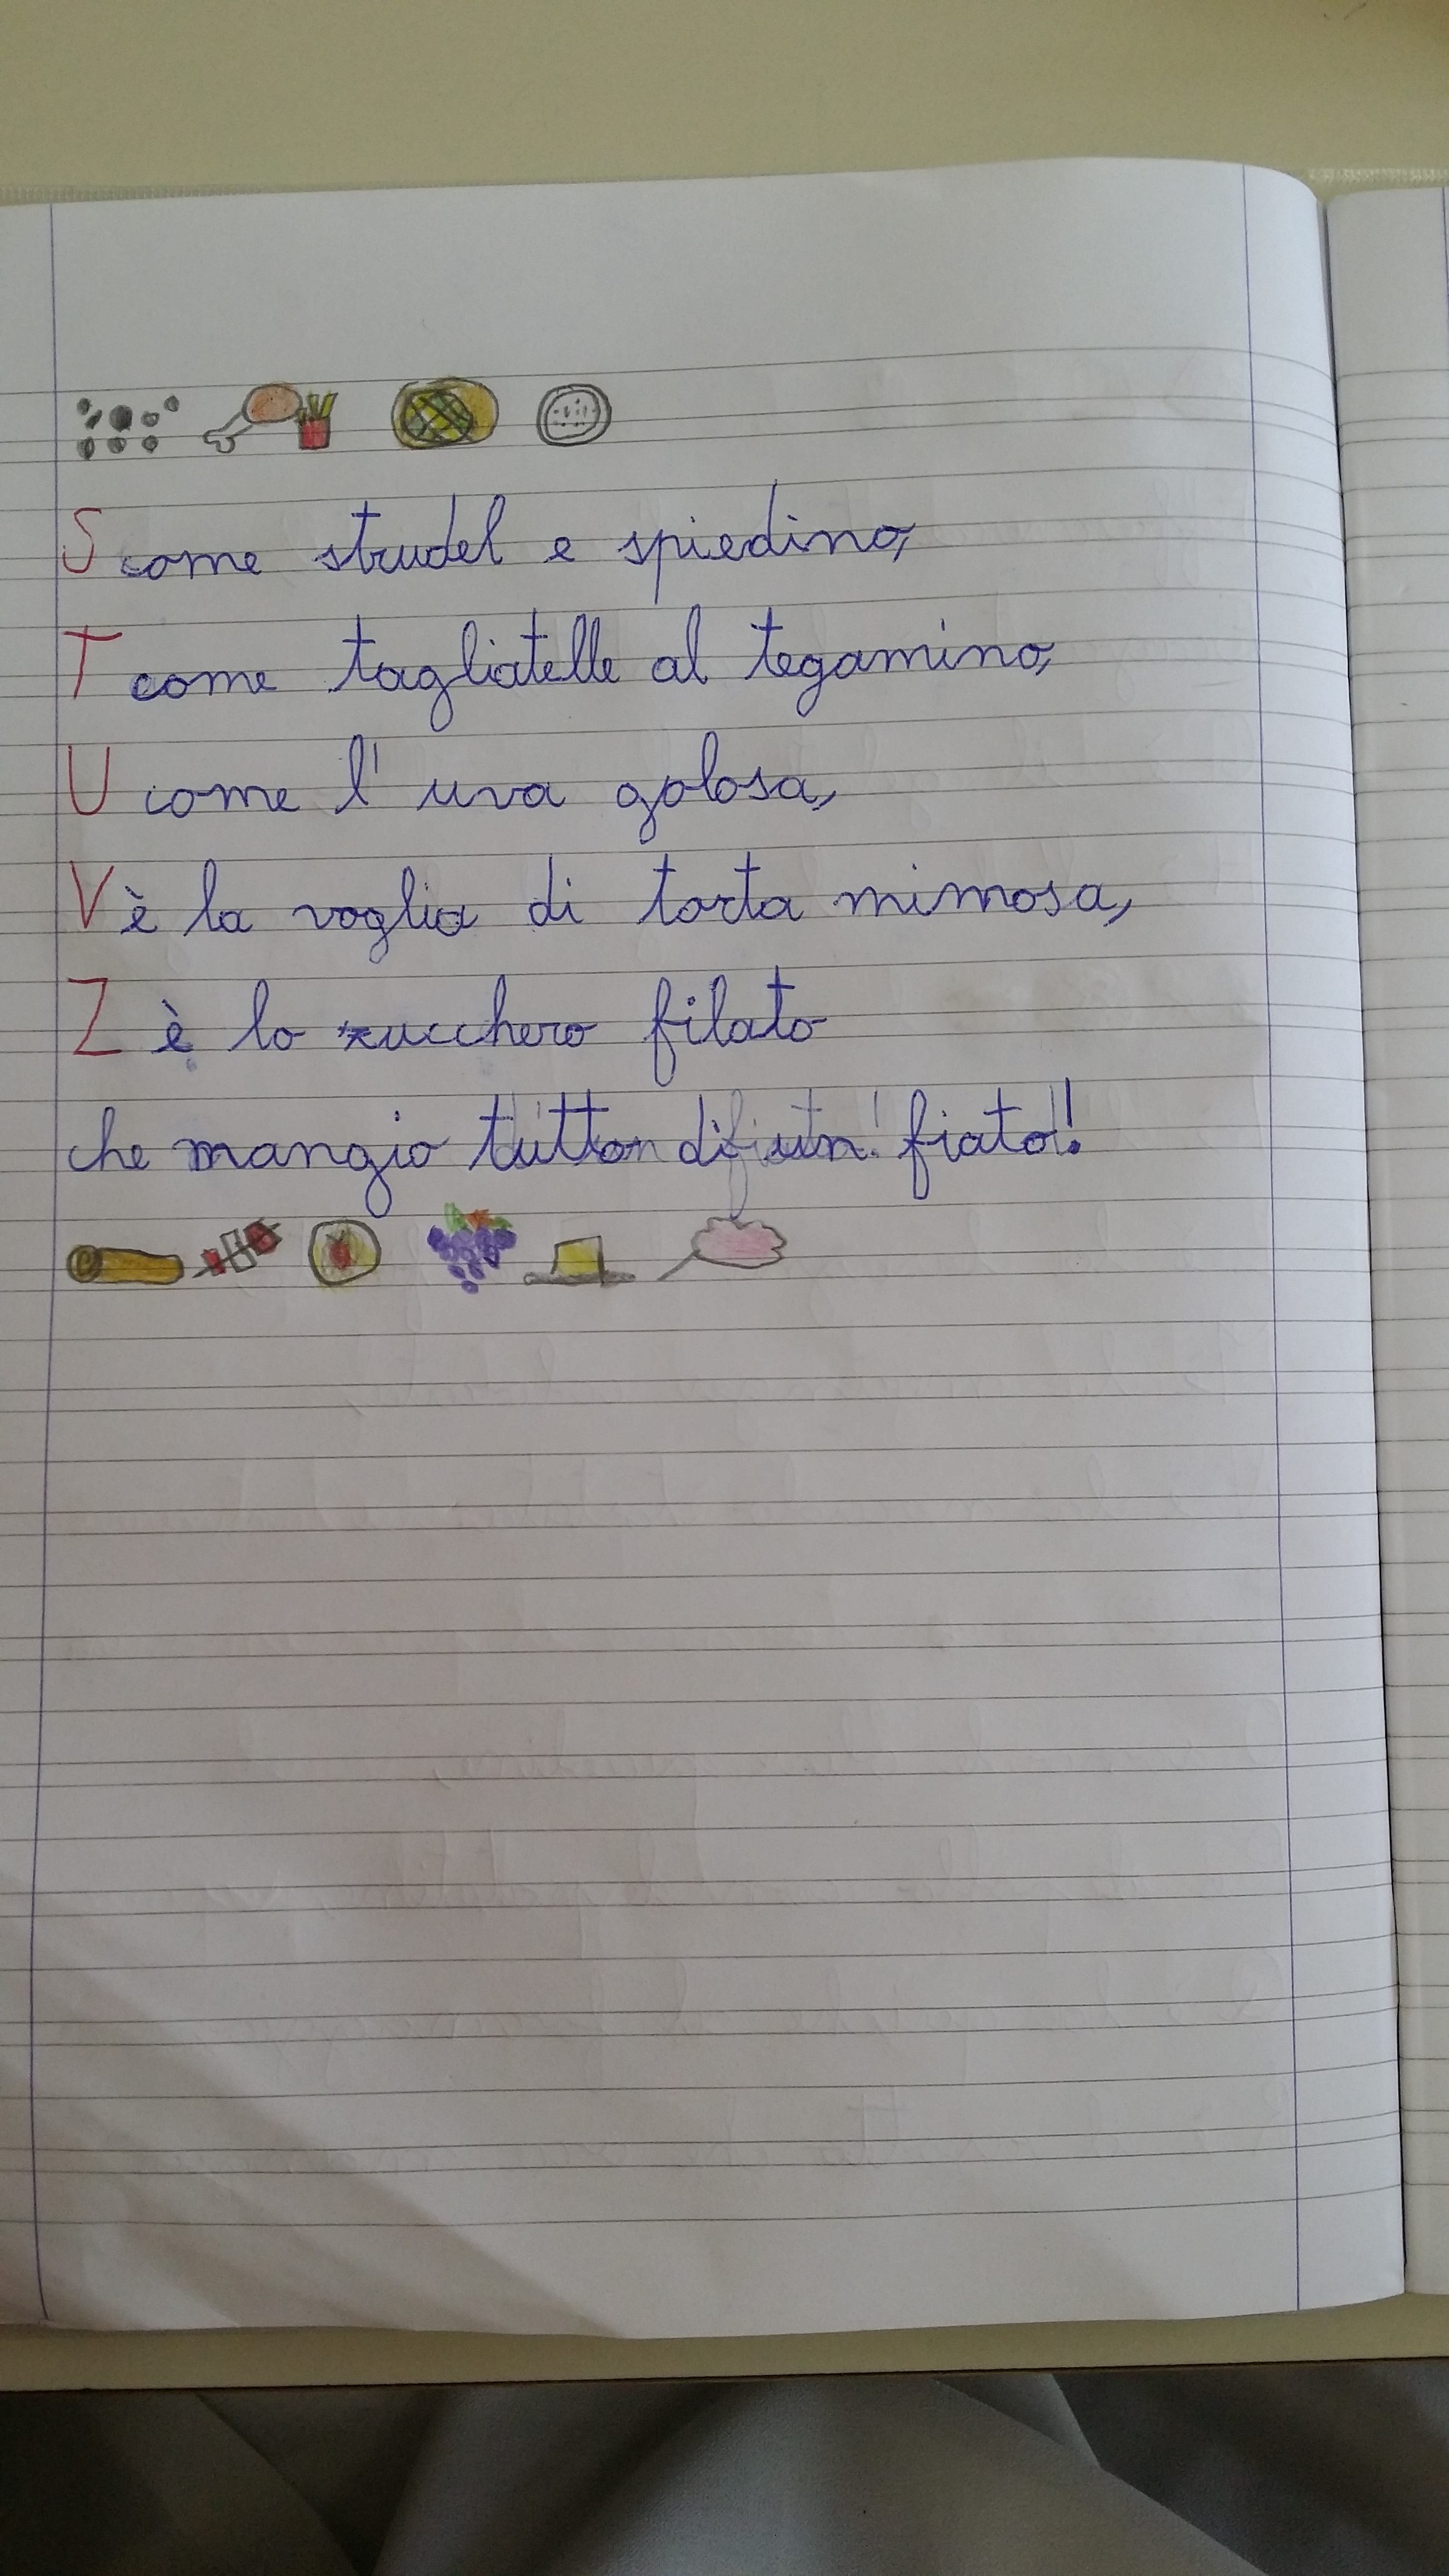 S come strudel e spiedino,
T come tagliatelle al tegamino,
U come l'uva golosa,
V è la voglia di torta mimosa,
Z è lo zucchero filato
che mangio tutto di un fiato!